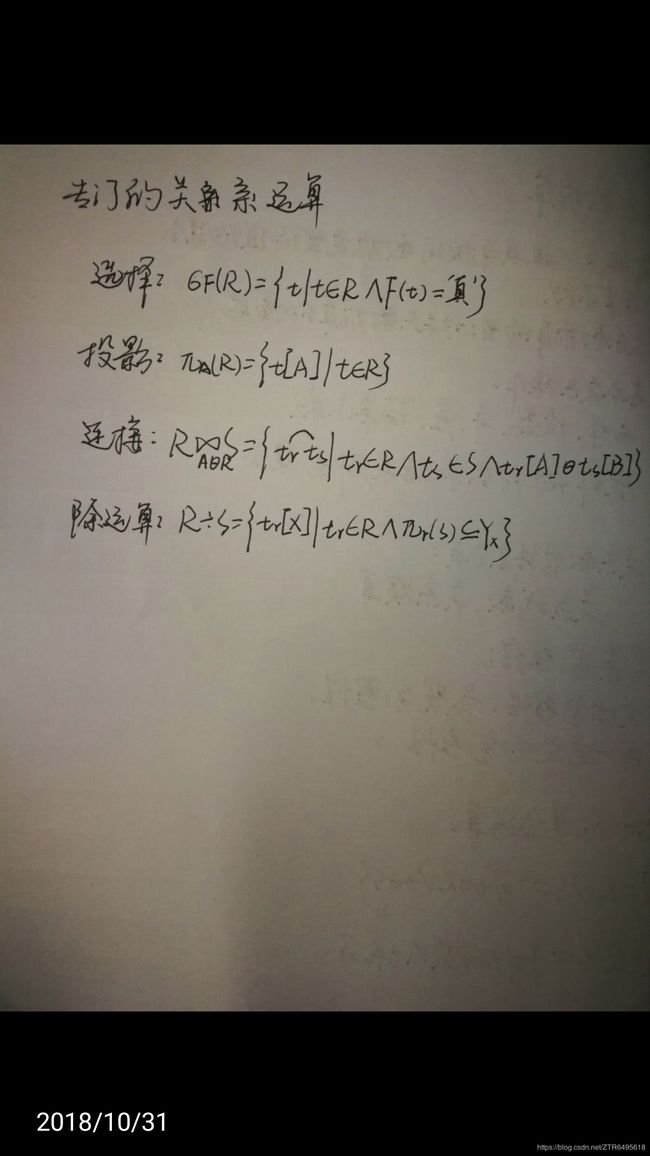 专门的关系运算
选择: σF(R)={t|t∈R∧F(t)='真'}
投影: πA(R)={t[A]|t∈R}
连接: R⋈S={tr⌢ts|tr∈R∧ts∈S∧tr[A]θts[B]}
AθR
除运算: R÷S={tr[X]|tr∈R∧πr(s)⊆Yx}
2018/10/31
https://blog.csdn.net/ZTR6495618